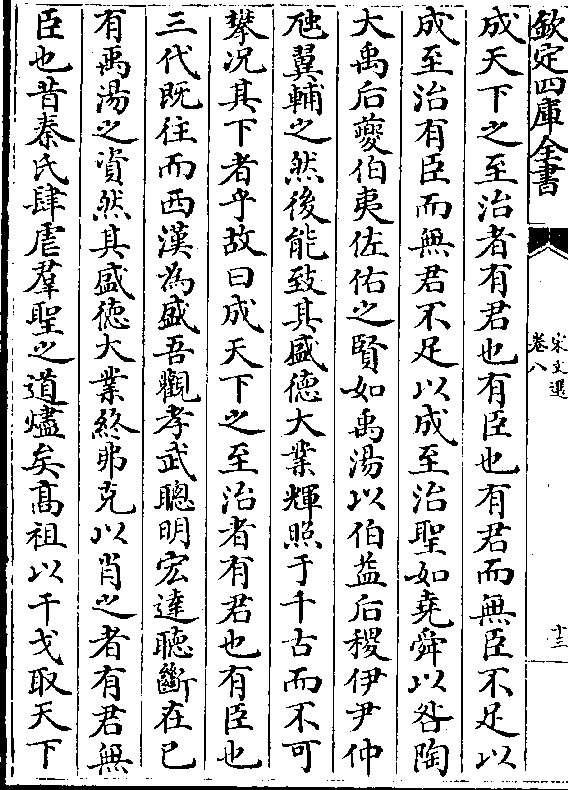 欽定四庫全書
宋文選
卷八
十三
成天下之至治者有君也有臣也有君而無臣不足以
成至治有臣而無君不足以成至治聖如堯舜以咎陶
大禹后夔伯夷佐佑之賢如禹湯以伯益后稷伊尹仲
虺翼輔之然後能致其盛德大業輝照于千古而不可
攀况其下者乎故曰成天下之至治者有君也有臣也
三代既往而西漢為盛吾觀孝武聰明宏達聽斷在已
有禹湯之資然其盛德大業終弗克以肖之者有君無
臣也昔秦氏肆虐羣聖之道燼矣高祖以干戈取天下